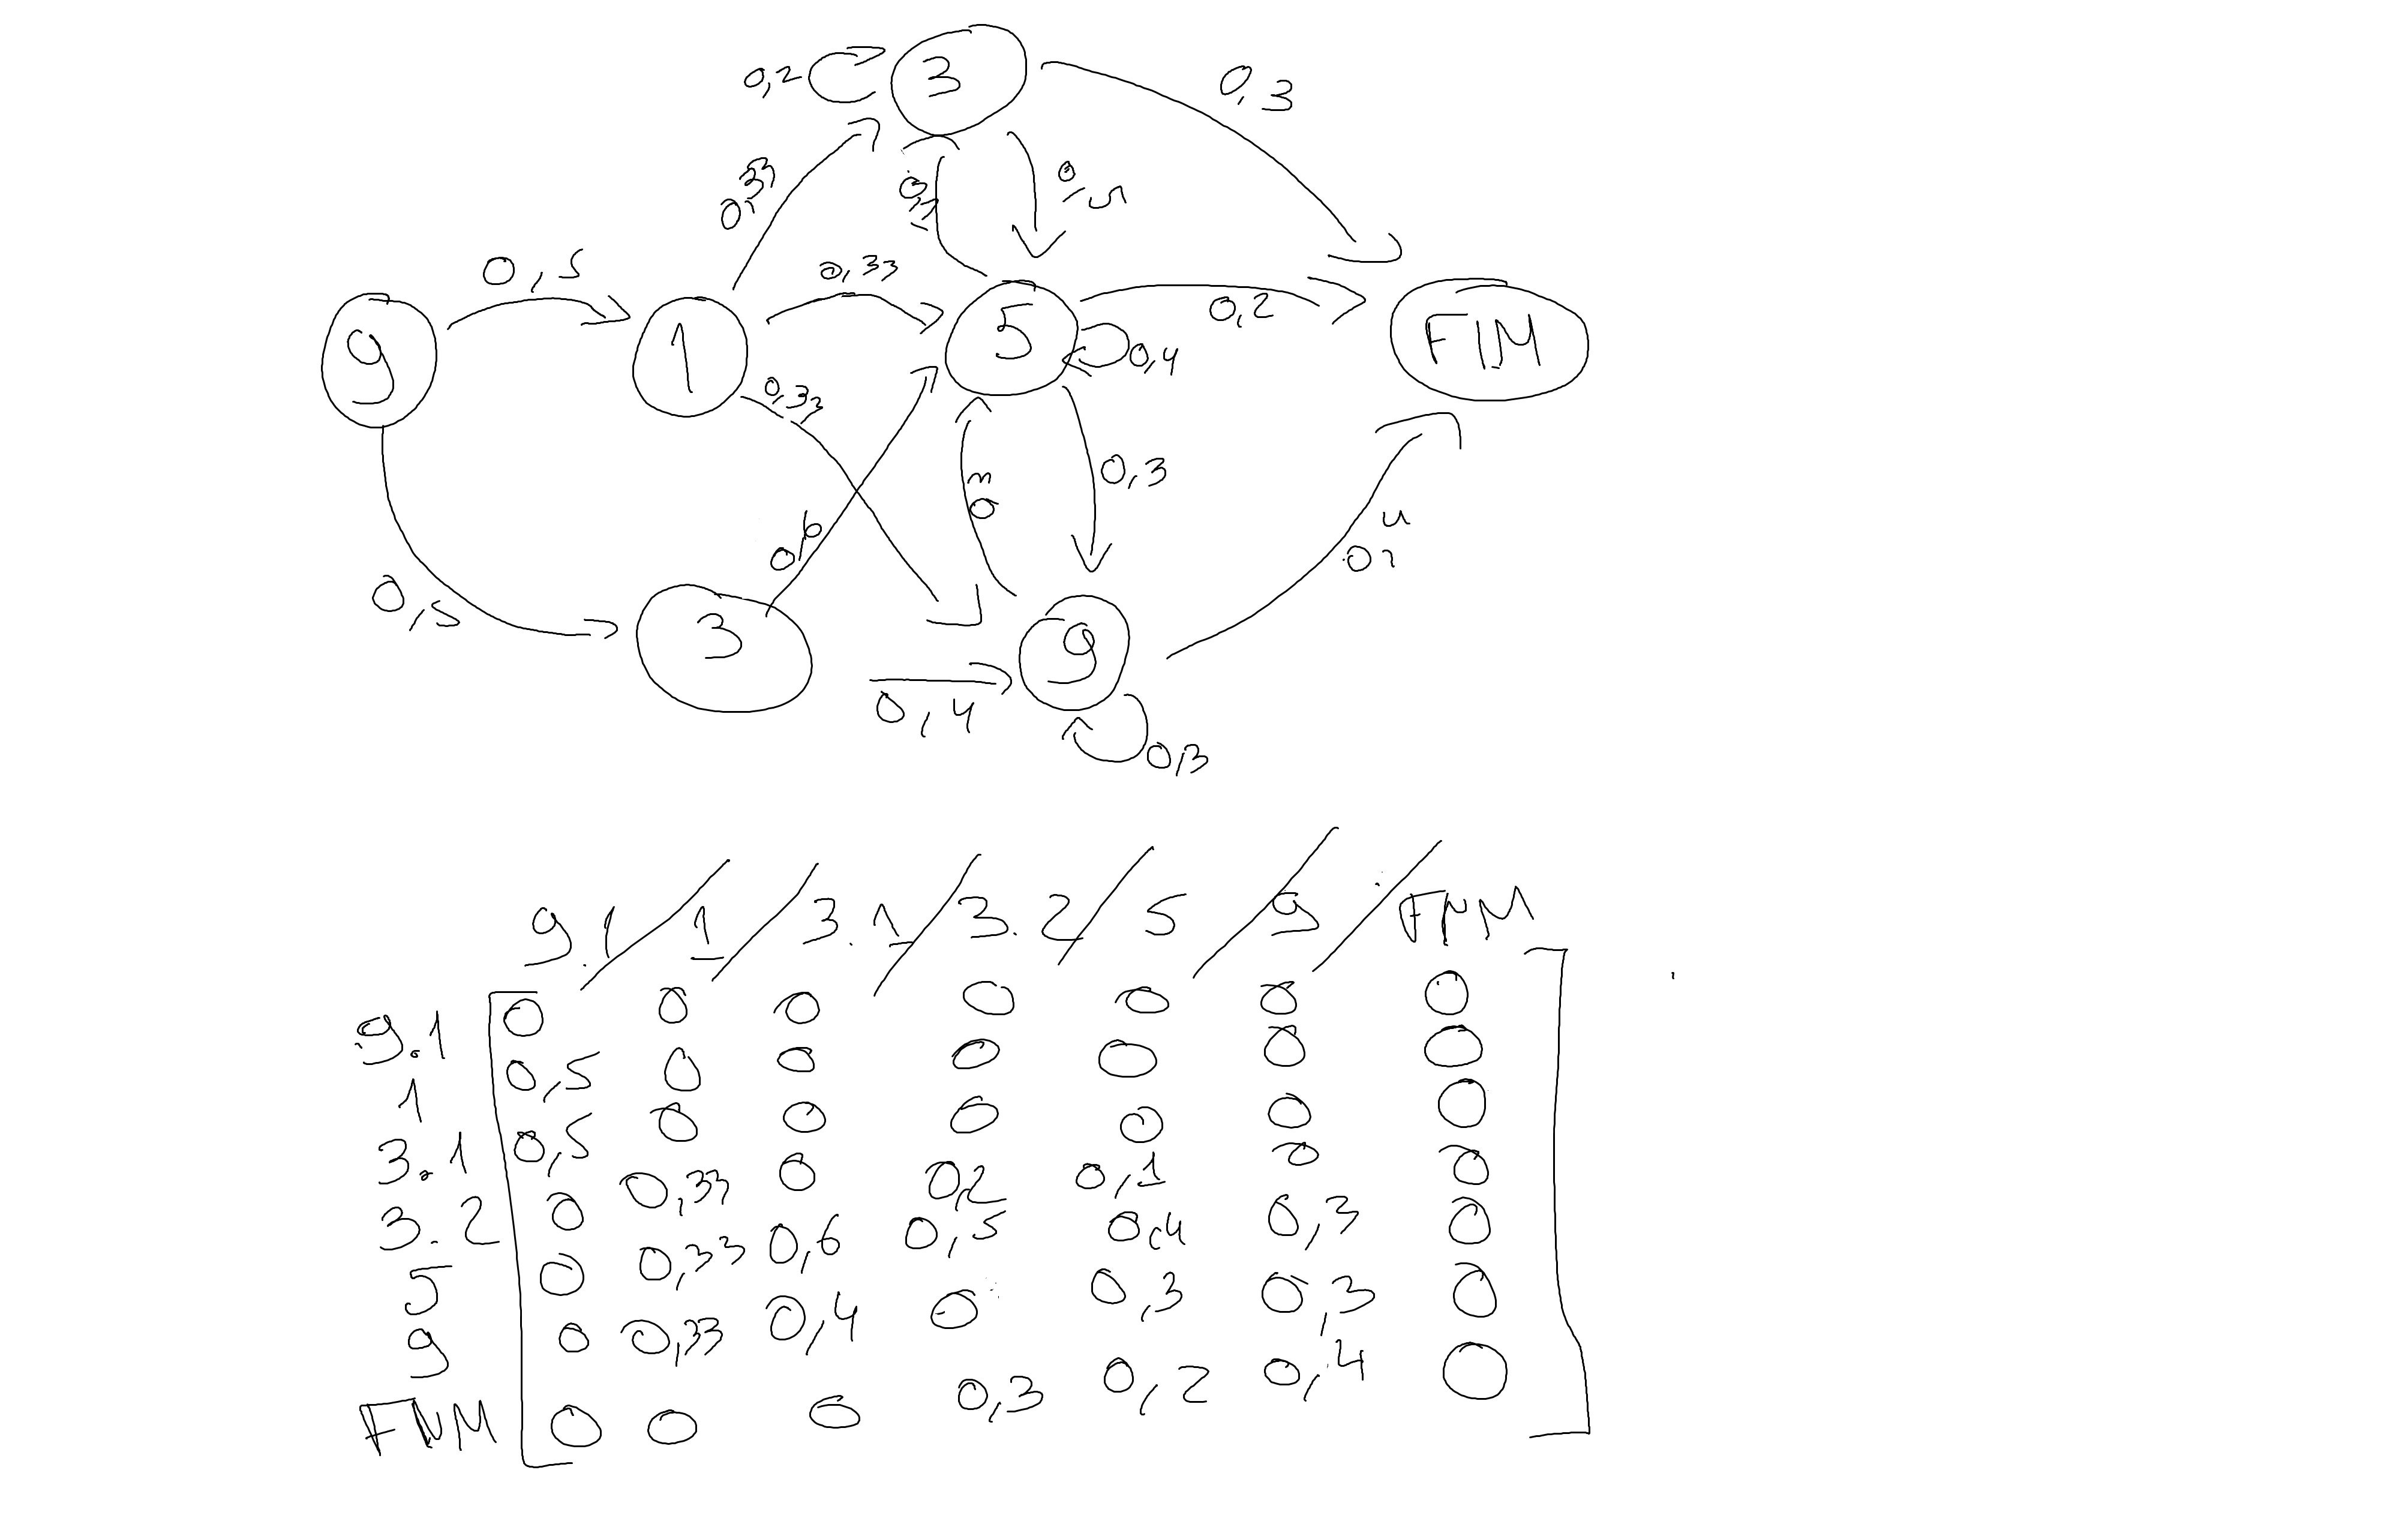 0,2 3 0,3
0,33 0,1 0,5
9 0,5 1 0,33 5 0,2 FIM
0,4
0,33
0,3 0,3
0,6 0,4
0,5 3 9
0,4 0,3
9.1 / 1 / 3.1 / 3.2 / 5 / 9 / FIM
9.1 0 0 0 0 0 0 0
1 0,5 0 0 0 0 0 0
3.1 0,5 0 0 0 0 0 0
3.2 0 0,33 0 0,2 0,1 0 0
5 0 0,33 0,6 0,5 0,4 0,3 0
9 0 0,33 0,4 0 0,3 0,3 0
FIM 0 0 0 0,3 0,2 0,4 0